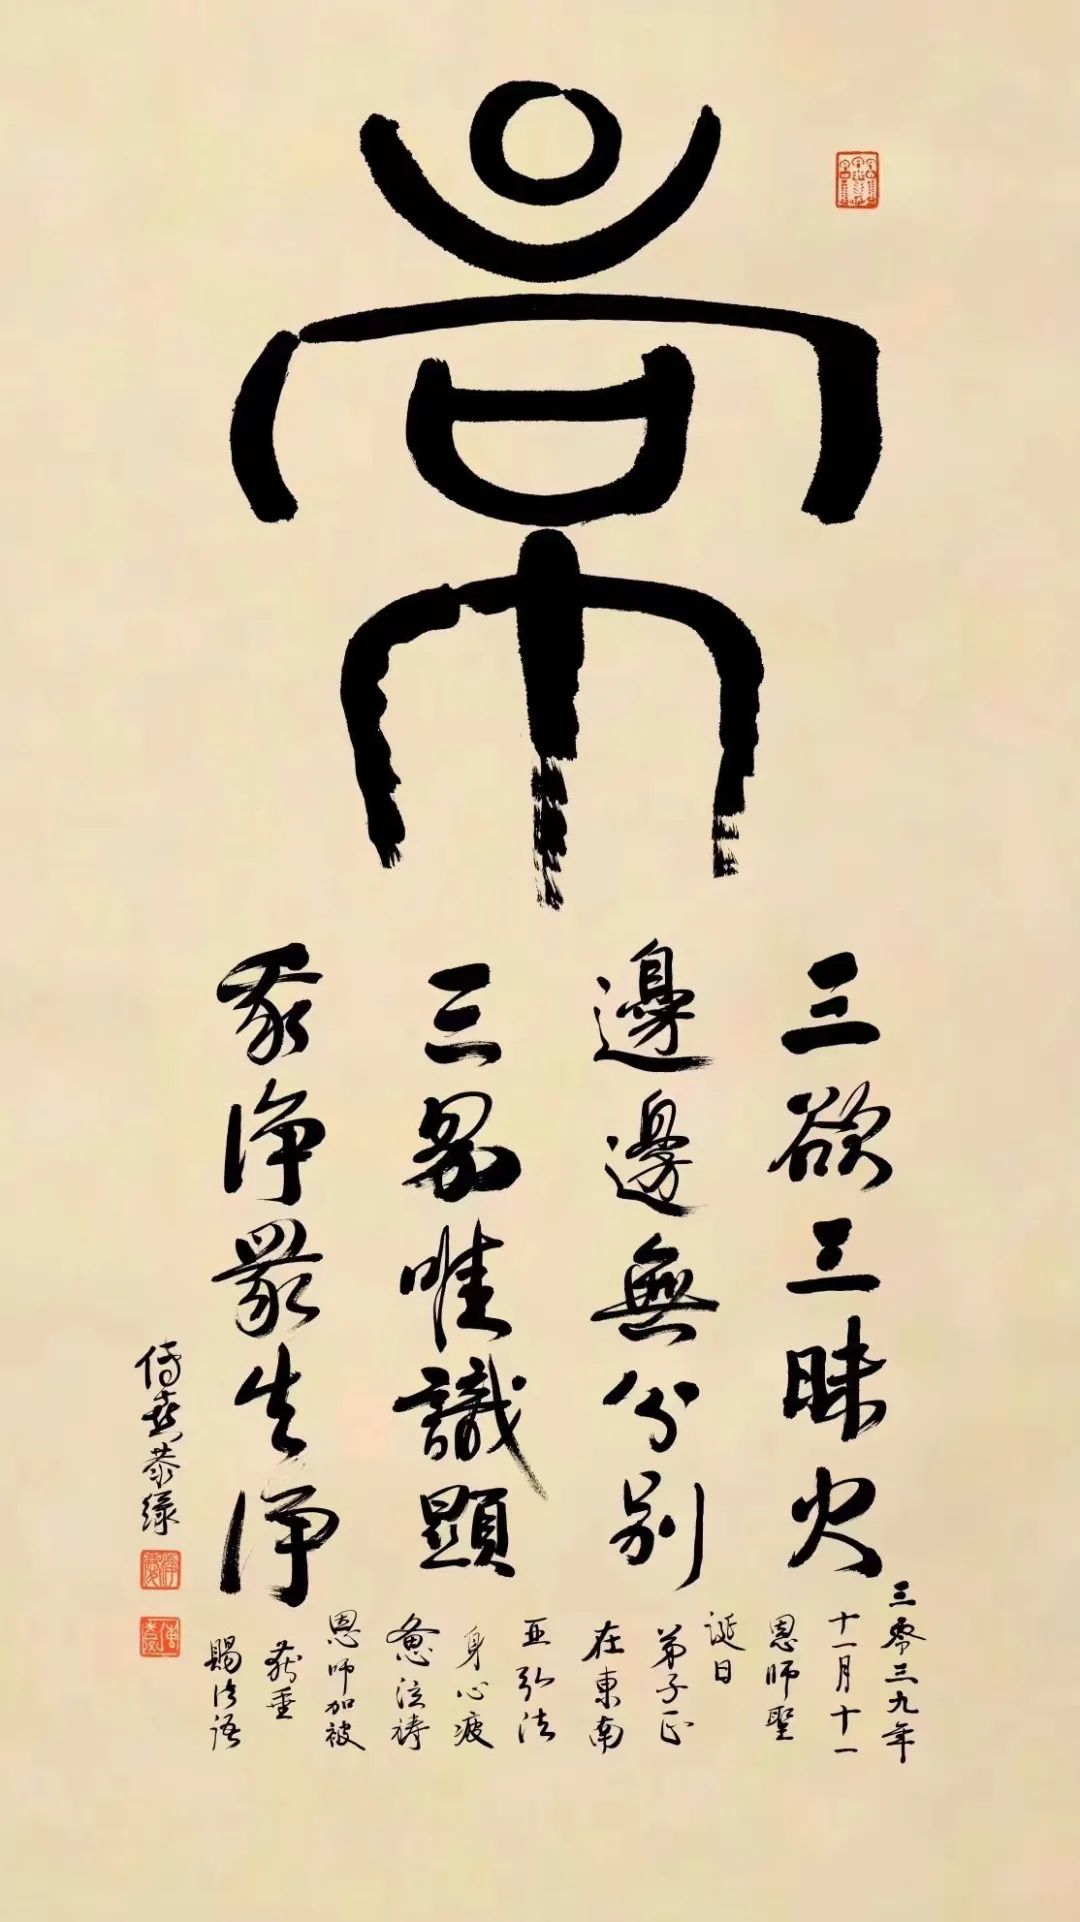 常
三欲三昧火
邊邊無分別
三界唯識顯
我淨眾生淨
三零三九年
十一月十一
恩師聖
誕日
弟子正
在東南
亞弘法
身心疲
憊泣禱
恩師加被
蒙垂
賜法語
傳喜恭錄